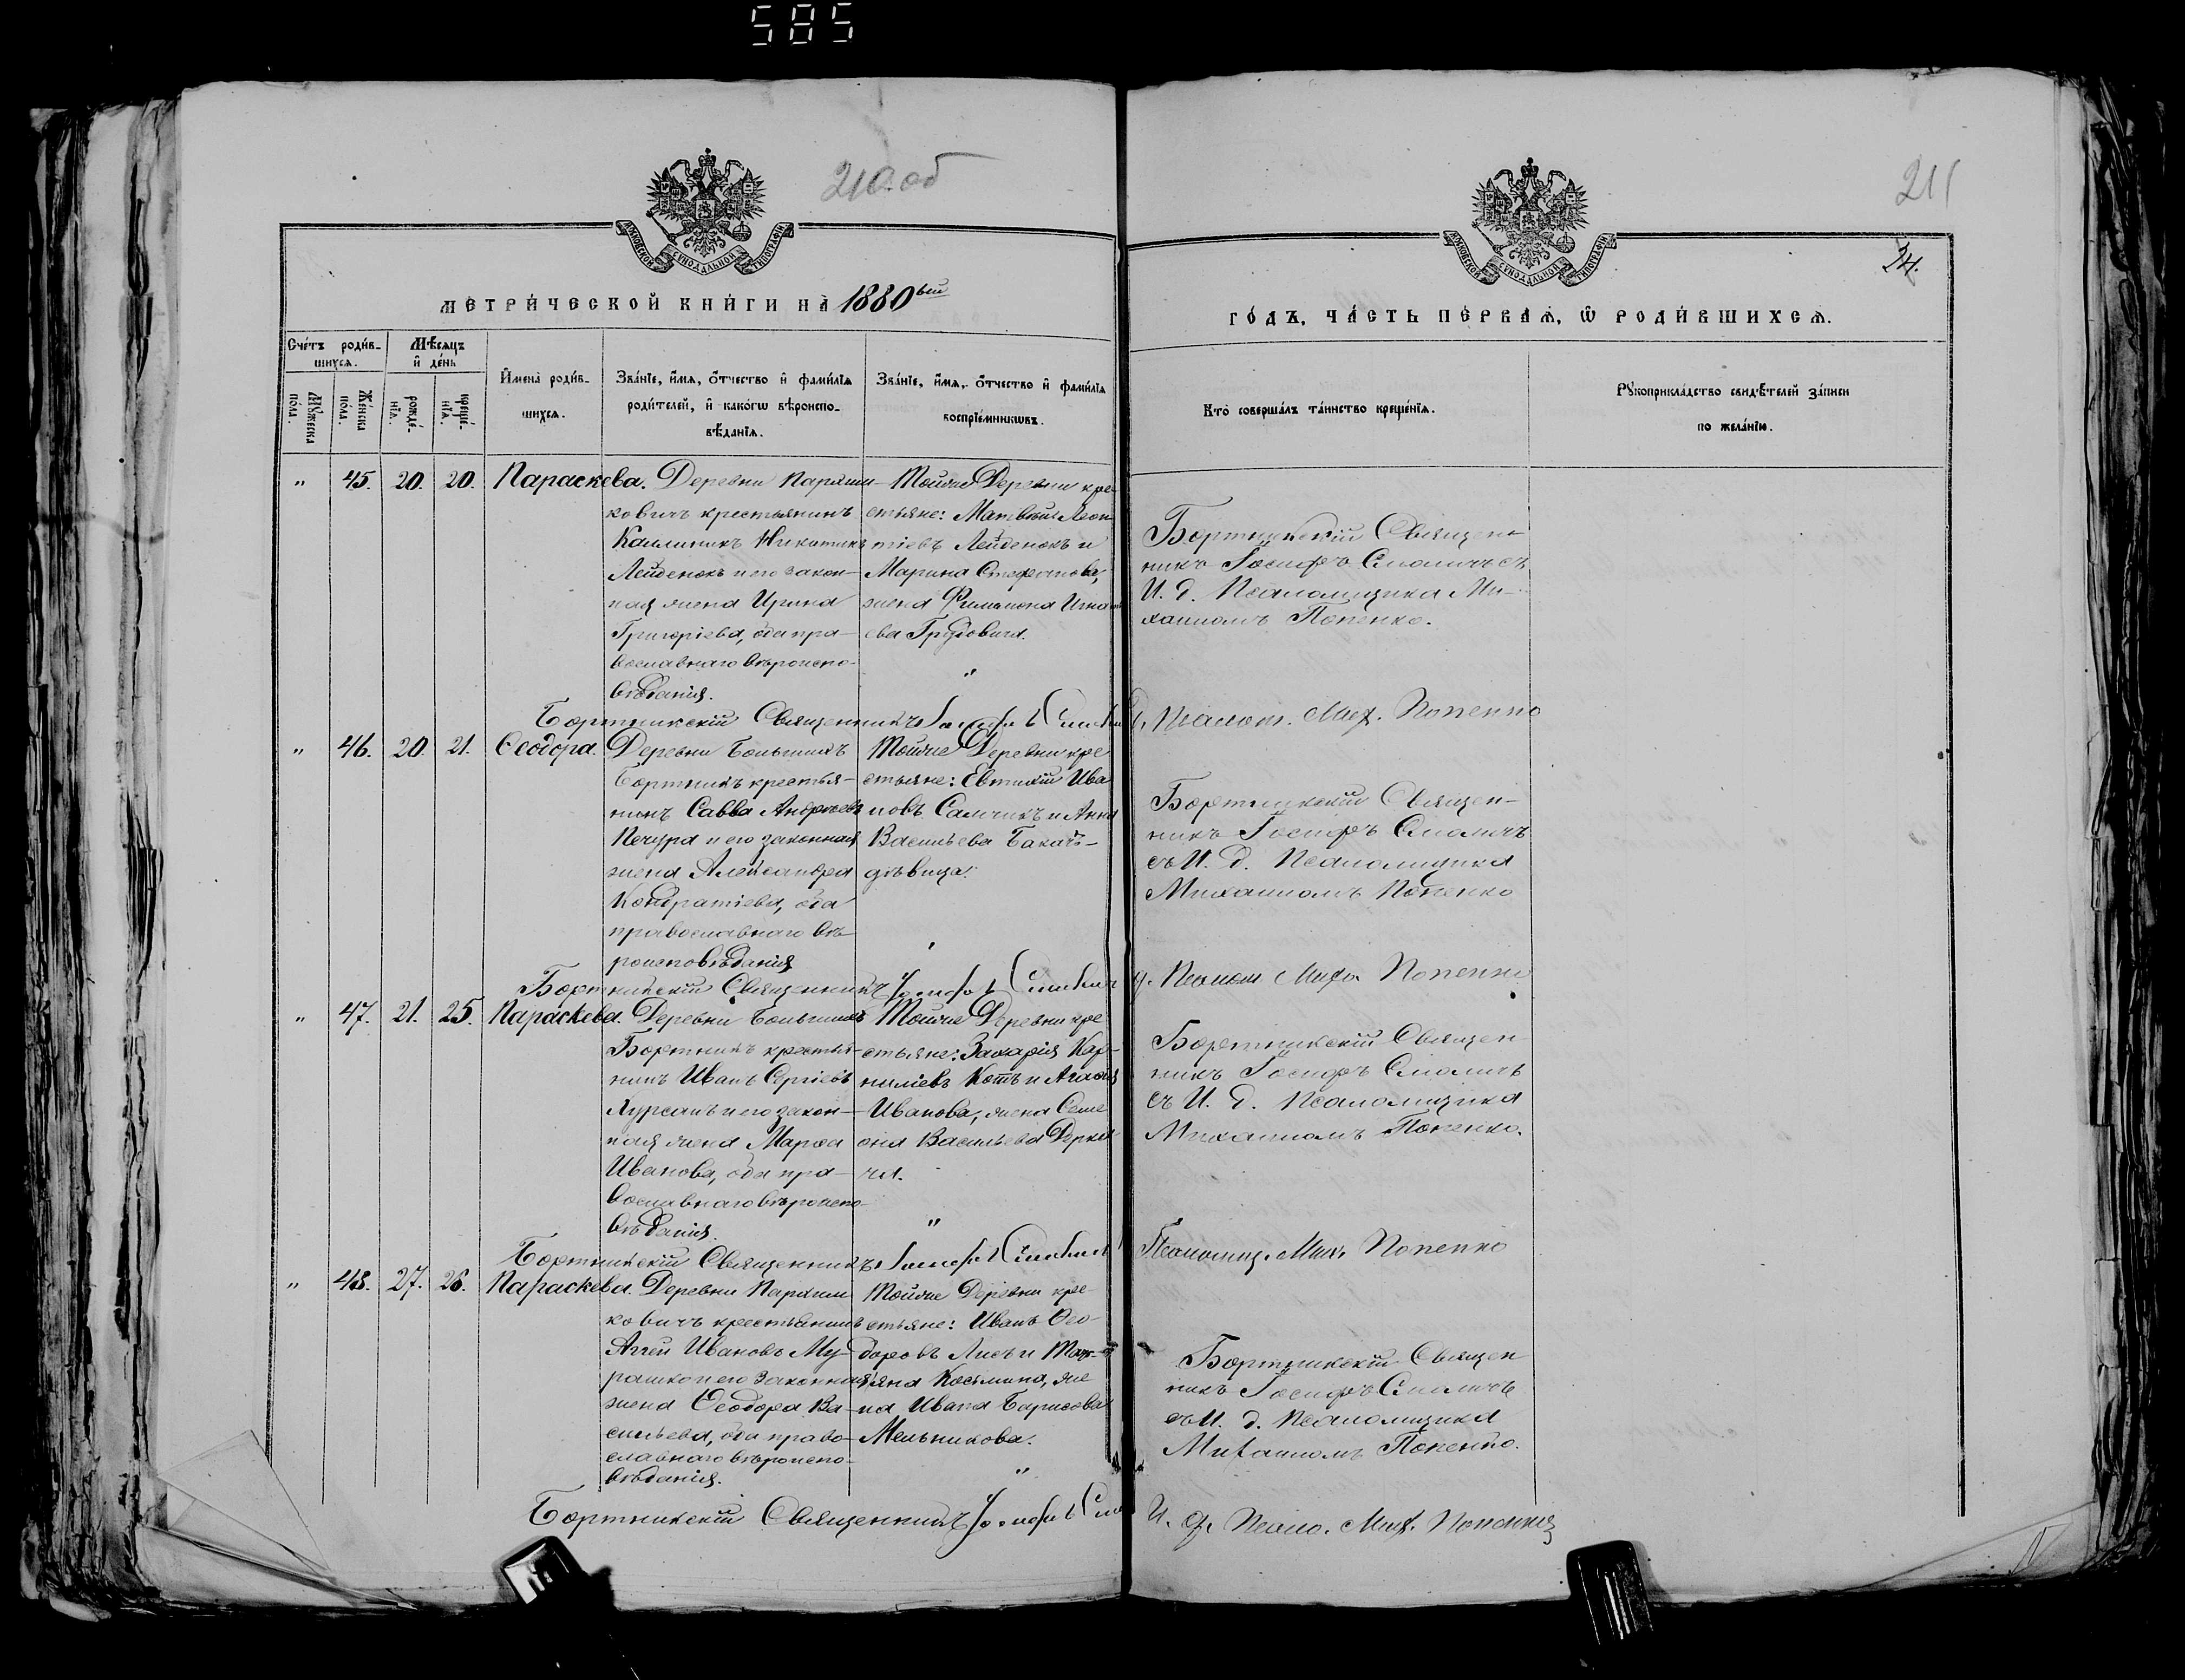 585
210 об
211
34.
МОСКОВСКОЙ СѴНОДАЛЬНОЙ ТИПОГРАФІИ
МОСКОВСКОЙ СѴНОДАЛЬНОЙ ТИПОГРАФІИ
МЕТРИ́ЧЕСКОЙ КНИ́ГИ НА̀ 1880ый
ГО́ДЪ, ЧА́СТЬ ПЕ́РВАѦ, Ѡ҆ РОДИ́ВШИХСѦ.
Сче́тъ роди́в-
шихсѧ.
Мѣ́сѧцъ
и҆ де́нь
Мꙋ́жеска
по́ла.
Же́нска
по́ла.
рожде́-
нїѧ.
креще́-
нїѧ.
И҆мена̀ роди́в-
шихсѧ.
Зва́нїе, и҆́мѧ, ѻ҆́тчество и҆ фами́лїѧ
роди́телей, и҆ како́гѡ вѣроиспо-
вѣ́данїѧ.
Зва́нїе, и҆́мѧ, ѻ҆́тчество и҆ фами́лїѧ
воспрїе́мникѡвъ.
Кто̀ соверша́лъ та́инство креще́нїѧ.
Рꙋкоприкла́дство свидѣ́телей за́писи
по жела́нїю.
" 45. 20. 20. Параскева.
Деревни Паршы-
ковичъ крестьянинъ
Каллиникъ Никитинъ
Лейденокъ и его закон-
ная жена Ирина
Григоріева, оба пра-
вославнаго вѣроиспо-
вѣданія.
Тойже Деревни кре-
стьяне: Матвѣй Леон
тіевъ Лейденокъ и
Марина Стефанова,
жена Филимона Игнать
ева Грудовича.
"
Бортникскій Священ-
никъ Іосифъ Смоличъ съ
И. д. Псаломщика Ми-
хаиломъ Попенко.
Бортникскій Священникъ Іосифъ Смолич
Псалом. Мих. Попенко
" 46. 20. 21. Ѳеодора.
Деревни Большихъ
Бортникъ крестья-
нинъ Савва Андреевъ
Печура и его законная
жена Александра
Кондратіева, оба
православнаго вѣ-
роисповѣданія
Тойже Деревни кре
стьяне: Евтихій Ива
новъ Саличикъ и Анна
Васильева Бакачъ-
дѣвица.
Бортникскій Священ-
никъ Іосифъ Смоличъ
съ И. д. Псаломщика
Михаиломъ Попенко
Бортникскій Священникъ Іосифъ Смолич
д. Псалом Миха Попенко
" 47. 21. 25. Параскева.
Деревни Большихъ
Бортникъ крестья-
нинъ Иванъ Сергіевъ
Хурсанъ и его закон-
ная жена Марѳа
Иванова, оба пра-
вославнаго вѣроиспо-
вѣданія.
Тойже Деревни кре
стьяне: Захарія Кор-
ниліевъ Котъ и Агаѳія
Иванова, жена Семе
она Васильева Дерка
ча.
"
Бортникскій Священ-
никъ Іосифъ Смоличъ
съ И. д. Псаломщика
Михаиломъ Попенко.
Бортникскій Священникъ Іосифъ Смолич
Псаломщ. Мих. Попенко
" 48. 27. 28. Параскева.
Деревни Паршы
ковичъ крестьянинъ
Аггей Ивановъ Му-
рашко и его законная
жена Ѳеодора Ва-
сильева, оба право-
славнаго вѣроиспо-
вѣданія.
Тойже Деревни кре-
стьяне: Иванъ Ѳео-
доровъ Лисъ и Тат-
тіяна Косьмина, же
на Ивана Борисова
Мельникова.
"
Бортникскій Священ
никъ Іосифъ Смоличъ
съ И. д. Псаломщика
Михаиломъ Попенко.
Бортникскій Священникъ Іосифъ Смо
И. д. Псало. Мих. Попенко